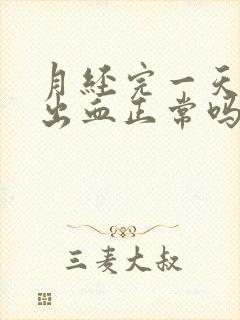 月经完一天
出血正常吗
三麦大叔